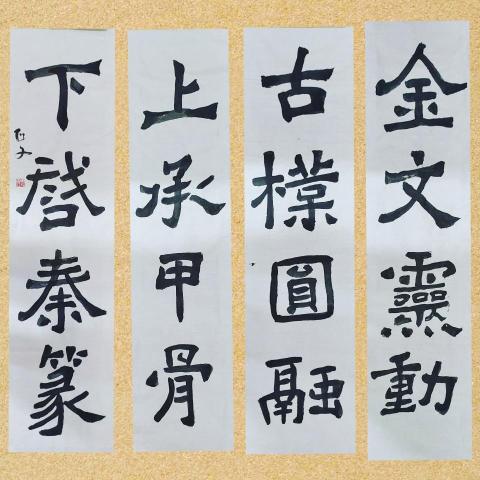 金文靈動
古樸圓融
上承甲骨
下啓秦篆